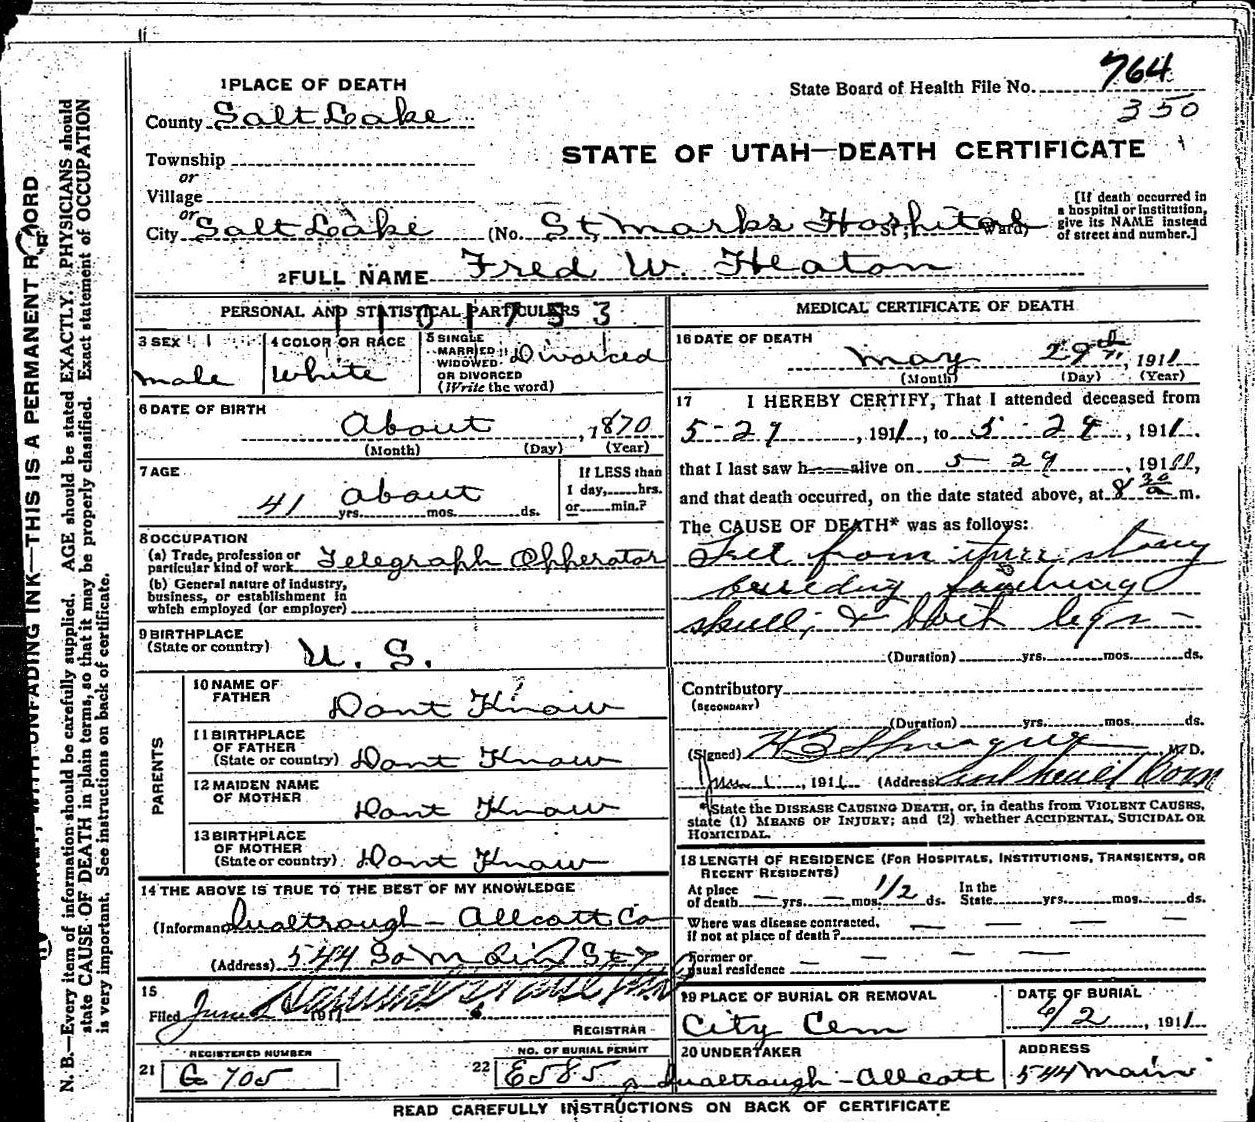 1 PLACE OF DEATH
State Board of Health File No. 764
350
County Salt Lake
STATE OF UTAH—DEATH CERTIFICATE
Township
or
Village
or
City Salt Lake (No. St, Marks Hospital St.; Ward)
[If death occurred in a hospital or institution, give its NAME instead of street and number.]
2 FULL NAME Fred W. Heaton
PERSONAL AND STATISTICAL PARTICULARS
1101753
3 SEX
male
4 COLOR OR RACE
White
5 SINGLE
MARRIED
WIDOWED
OR DIVORCED
(Write the word)
Divorced
6 DATE OF BIRTH
About , 1870
(Month) (Day) (Year)
7 AGE
41 yrs. About mos. ds.
If LESS than
1 day, hrs.
or min.?
8 OCCUPATION
(a) Trade, profession or
particular kind of work Telegraph Opperator
(b) General nature of industry,
business, or establishment in
which employed (or employer)
9 BIRTHPLACE
(State or country) U. S.
PARENTS
10 NAME OF
FATHER Dont Know
11 BIRTHPLACE
OF FATHER
(State or country) Dont Know
12 MAIDEN NAME
OF MOTHER Dont Know
13 BIRTHPLACE
OF MOTHER
(State or country) Dont Know
14 THE ABOVE IS TRUE TO THE BEST OF MY KNOWLEDGE
(Informant) Qualtrough - Allcott Co
(Address) 544 So Main St
15
Filed June 2 1911
REGISTRAR
REGISTERED NUMBER
21 G 705
NO. OF BURIAL PERMIT
22 E585
MEDICAL CERTIFICATE OF DEATH
16 DATE OF DEATH
May 29th, 1911
(Month) (Day) (Year)
17 I HEREBY CERTIFY, That I attended deceased from
5-29, 1911, to 5-29, 1911.
that I last saw h alive on 5-29, 1911,
and that death occurred, on the date stated above, at 8 30 a m.
The CAUSE OF DEATH* was as follows:
Fell from three story
building fracturing
skull, & both legs
(Duration) yrs. mos. ds.
Contributory
(SECONDARY)
(Duration) yrs. mos. ds.
(Signed) H B Sprague, M. D.
June 1, 1911 (Address)
*State the DISEASE CAUSING DEATH, or, in deaths from VIOLENT CAUSES,
state (1) MEANS OF INJURY; and (2) whether ACCIDENTAL, SUICIDAL OR
HOMICIDAL.
18 LENGTH OF RESIDENCE (FOR HOSPITALS, INSTITUTIONS, TRANSIENTS, OR
RECENT RESIDENTS)
At place
of death — yrs. — mos. 1/2 ds.
In the
State yrs. mos. ds.
Where was disease contracted,
if not at place of death? — — —
Former or
usual residence — — — —
19 PLACE OF BURIAL OR REMOVAL
City Cem
DATE OF BURIAL
6/2, 1911
20 UNDERTAKER
Qualtrough - Allcott
ADDRESS
544 Main
READ CAREFULLY INSTRUCTIONS ON BACK OF CERTIFICATE
WITH UNFADING INK—THIS IS A PERMANENT RECORD
N. B.—Every item of information should be carefully supplied. AGE should be stated EXACTLY. PHYSICIANS should
state CAUSE OF DEATH in plain terms, so that it may be properly classified. Exact statement of OCCUPATION
is very important. See instructions on back of certificate.